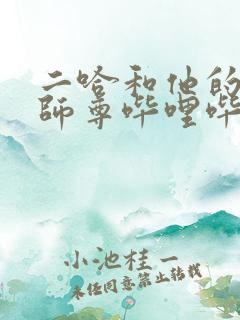 二哈和他的
師尊哔哩哔
小池桂一
未经同意禁止转载